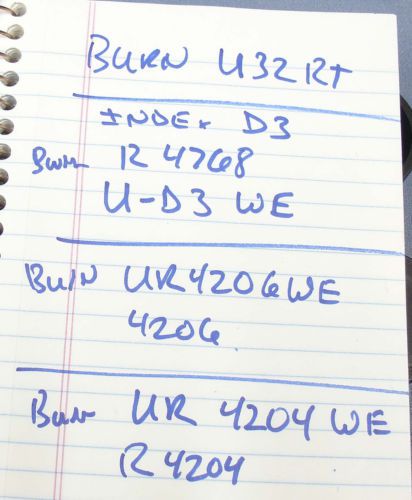 BURN U32RT
INDEX D3
Burn R 4768
U-D3 WE
BURN UR4206WE
4206
Burn UR 4204 WE
R 4204